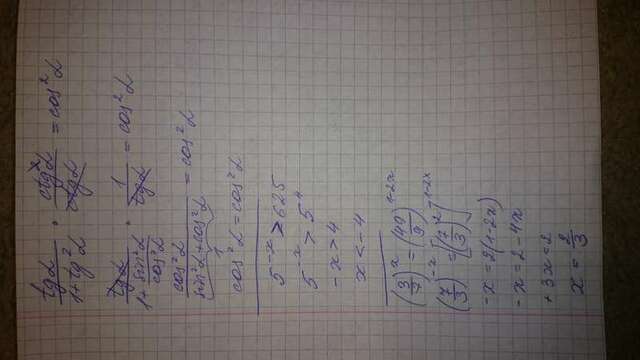 tgα / (1+tg²α) · ctg²α / ctgα = cos²α
tgα / (1 + sin²α/cos²α) · 1/tgα = cos²α
cos²α / (sin²α+cos²α) = cos²α
1
cos²α = cos²α
5^(-x) > 625
5^(-x) > 5^4
-x > 4
x < -4
(3/7)^x = (49/9)^(1-2x)
(7/3)^(-x) = [(7/3)^2]^(1-2x)
-x = 2(1-2x)
-x = 2-4x
+3x = 2
x = 2/3